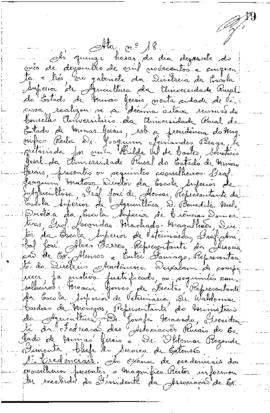 19
Ata nº 18.
Às quinze horas do dia dezesete do
mês de dezembro de mil novecentos e cinquen-
ta e três, no gabinete da Diretoria da Escola
Superior de Agricultura da Universidade Rural
do Estado de Minas Gerais, nesta cidade de Vi-
çosa, realizou-se a décima oitava reunião do
Conselho Universitário da Universidade Rural do
Estado de Minas Gerais, sob a presidência do Mag-
nífico Reitor Dr. Joaquim Fernandes Braga,
secretariada por mim, de Castro, Secretário
Geral da Universidade Rural do Estado de Minas
Gerais, presentes os seguintes conselheiros: Prof.
Joaquim Matoso, Diretor da Escola Superior de
Agricultura, Prof. José de Alencar, Representante da
Escola Superior de Agricultura, D. Benedita Melo,
Diretora da Escola Superior de Ciências Domés-
ticas, Prof. Machado Magalhães, Dire-
tor da Escola Superior de Veterinária, Prof.
José Alves Torres, Representante da Associação
de Ex-Alunos e Representan-
te do Diretório Acadêmico. Deixaram de compare-
cer, por motivo justificado, os seguintes con-
selheiros: Moacir Gomes de Freitas, Representante
da Escola Superior de Veterinária, Dr. Waldemar
Cardoso de Menezes, Representante do Ministério
da Agricultura, Dr. Josafá Macedo, Presiden-
te da Federação das Associações Rurais do Esta-
do de Minas Gerais e Dr. Rezende
Pimenta, Chefe do Serviço de Extensão.
1º Credenciais: Ao exame de credenciais dos
conselheiros presentes, o Magnífico Reitor informou
ter recebido do Presidente da Associação de Ex-